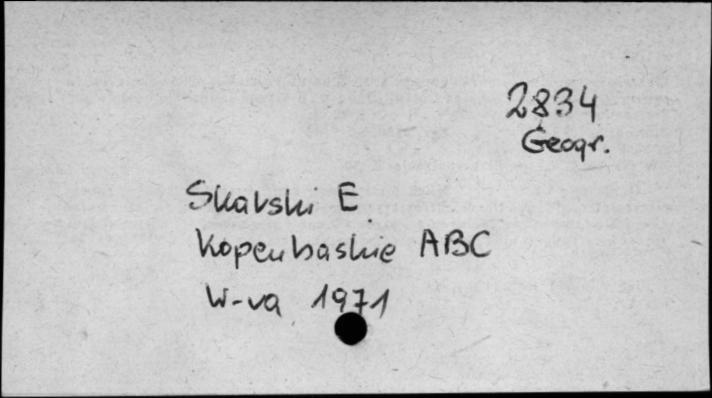 2834
Geogr.
Skarski E.
Kopenhaskie ABC
W-va 1971